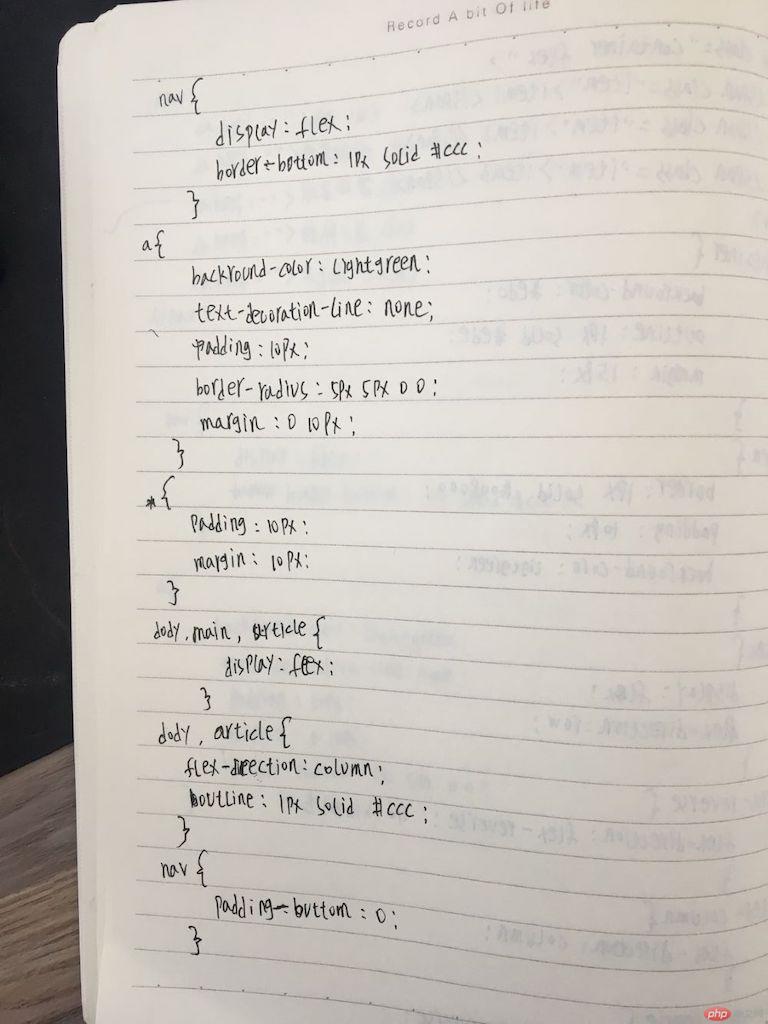 Record A bit Of life
nav {
display: flex;
border-bottom: 1px solid #ccc;
}
a{
backround-color: Lightgreen;
text-decoration-line: none;
padding: 10px;
border-radius: 5px 5px 0 0;
margin: 0 10px;
}
*{
padding: 10px;
margin: 10px;
}
dody, main, article {
display: flex;
}
dody, article {
flex-direction: column;
outline: 1px solid #ccc;
}
nav {
padding-buttom: 0;
}
php